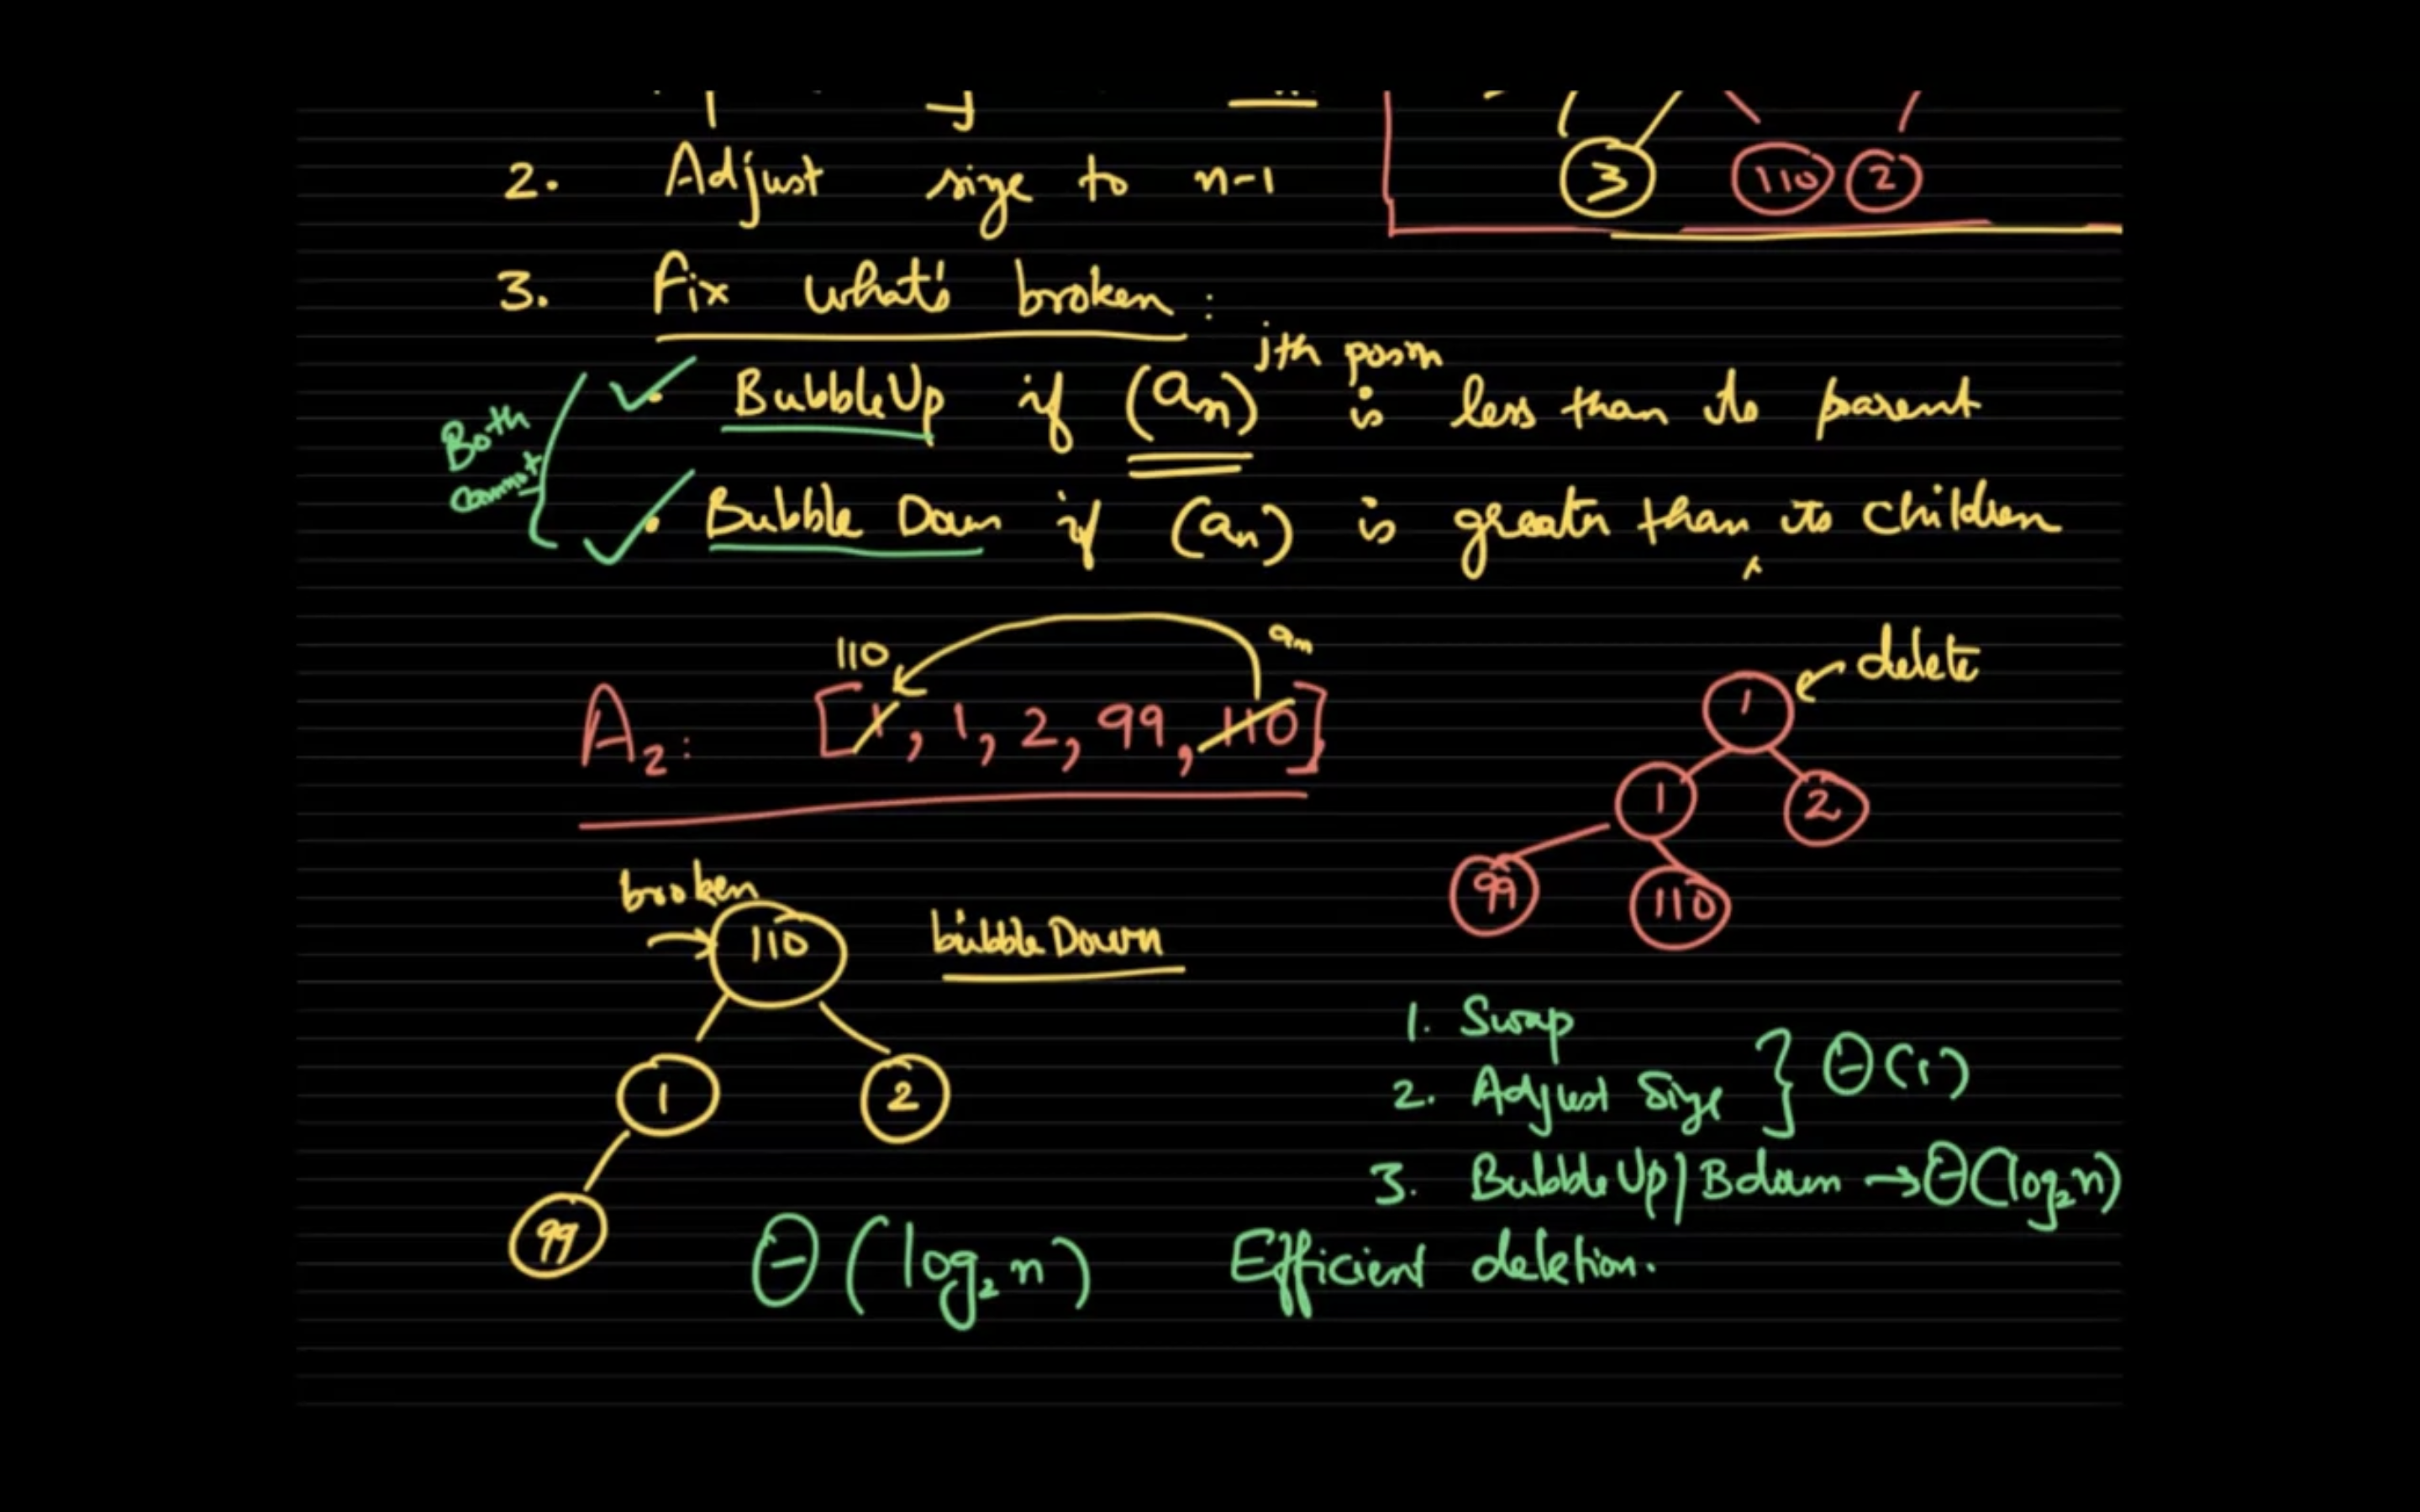 3 110 2
2. Adjust size to n-1
3. Fix what's broken :
jth posn
• BubbleUp if (an) is less than its parent
Both
cannot
• Bubble Down if (an) is greater than its children
110 an
A2: [1, 1, 2, 99, 110]
delete
1
1 2
99 110
broken
110 bubbleDown
1 2
99
1. Swap
2. Adjust Size } Θ(1)
3. BubbleUp|Bdown → Θ(log2n)
Θ(log2 n) Efficient deletion.